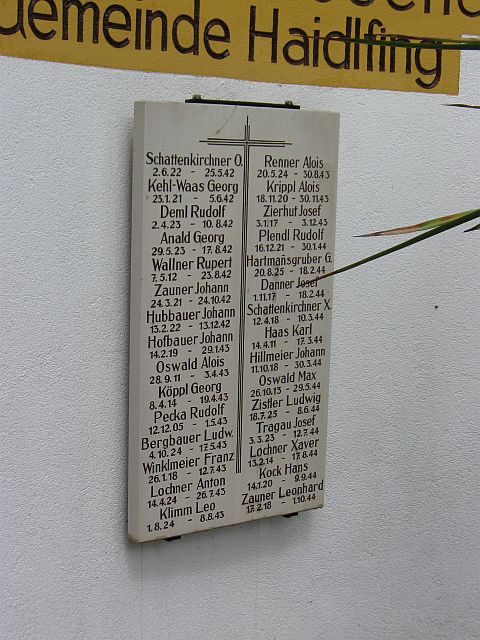 Gemeinde Haidlfing
Schattenkirchner O.
2.6.22 - 25.5.42
Kehl-Waas Georg
23.1.21 - 5.6.42
Deml Rudolf
2.4.23 - 10.8.42
Anald Georg
29.5.23 - 17.8.42
Wallner Rupert
7.5.12 - 23.8.42
Zauner Johann
24.3.21 - 24.10.42
Hubbauer Johann
13.2.22 - 13.12.42
Hofbauer Johann
14.2.19 - 29.1.43
Oswald Alois
28.9.11 - 3.4.43
Köppl Georg
8.4.14 - 19.4.43
Pecka Rudolf
12.12.05 - 1.5.43
Bergbauer Ludw.
4.10.24 - 17.5.43
Winklmeier Franz
26.1.18 - 12.7.43
Lochner Anton
14.4.24 - 26.7.43
Klimm Leo
1.8.24 - 8.8.43
Renner Alois
20.5.24 - 30.8.43
Krippl Alois
18.11.20 - 30.11.43
Zierhut Josef
3.1.17 - 3.12.43
Plendl Rudolf
16.12.21 - 30.1.44
Hartmañsgruber G.
20.8.25 - 18.2.44
Danner Josef
1.11.17 - 18.2.44
Schattenkirchner X.
12.4.18 - 10.3.44
Haas Karl
14.4.11 - 17.3.44
Hillmeier Johann
11.10.18 - 30.3.44
Oswald Max
26.10.13 - 29.5.44
Zistler Ludwig
18.7.25 - 8.6.44
Tragau Josef
3.3.23 - 12.7.44
Lochner Xaver
13.2.14 - 17.8.44
Kock Hans
14.1.20 - 9.9.44
Zauner Leonhard
17.2.18 - 1.10.44